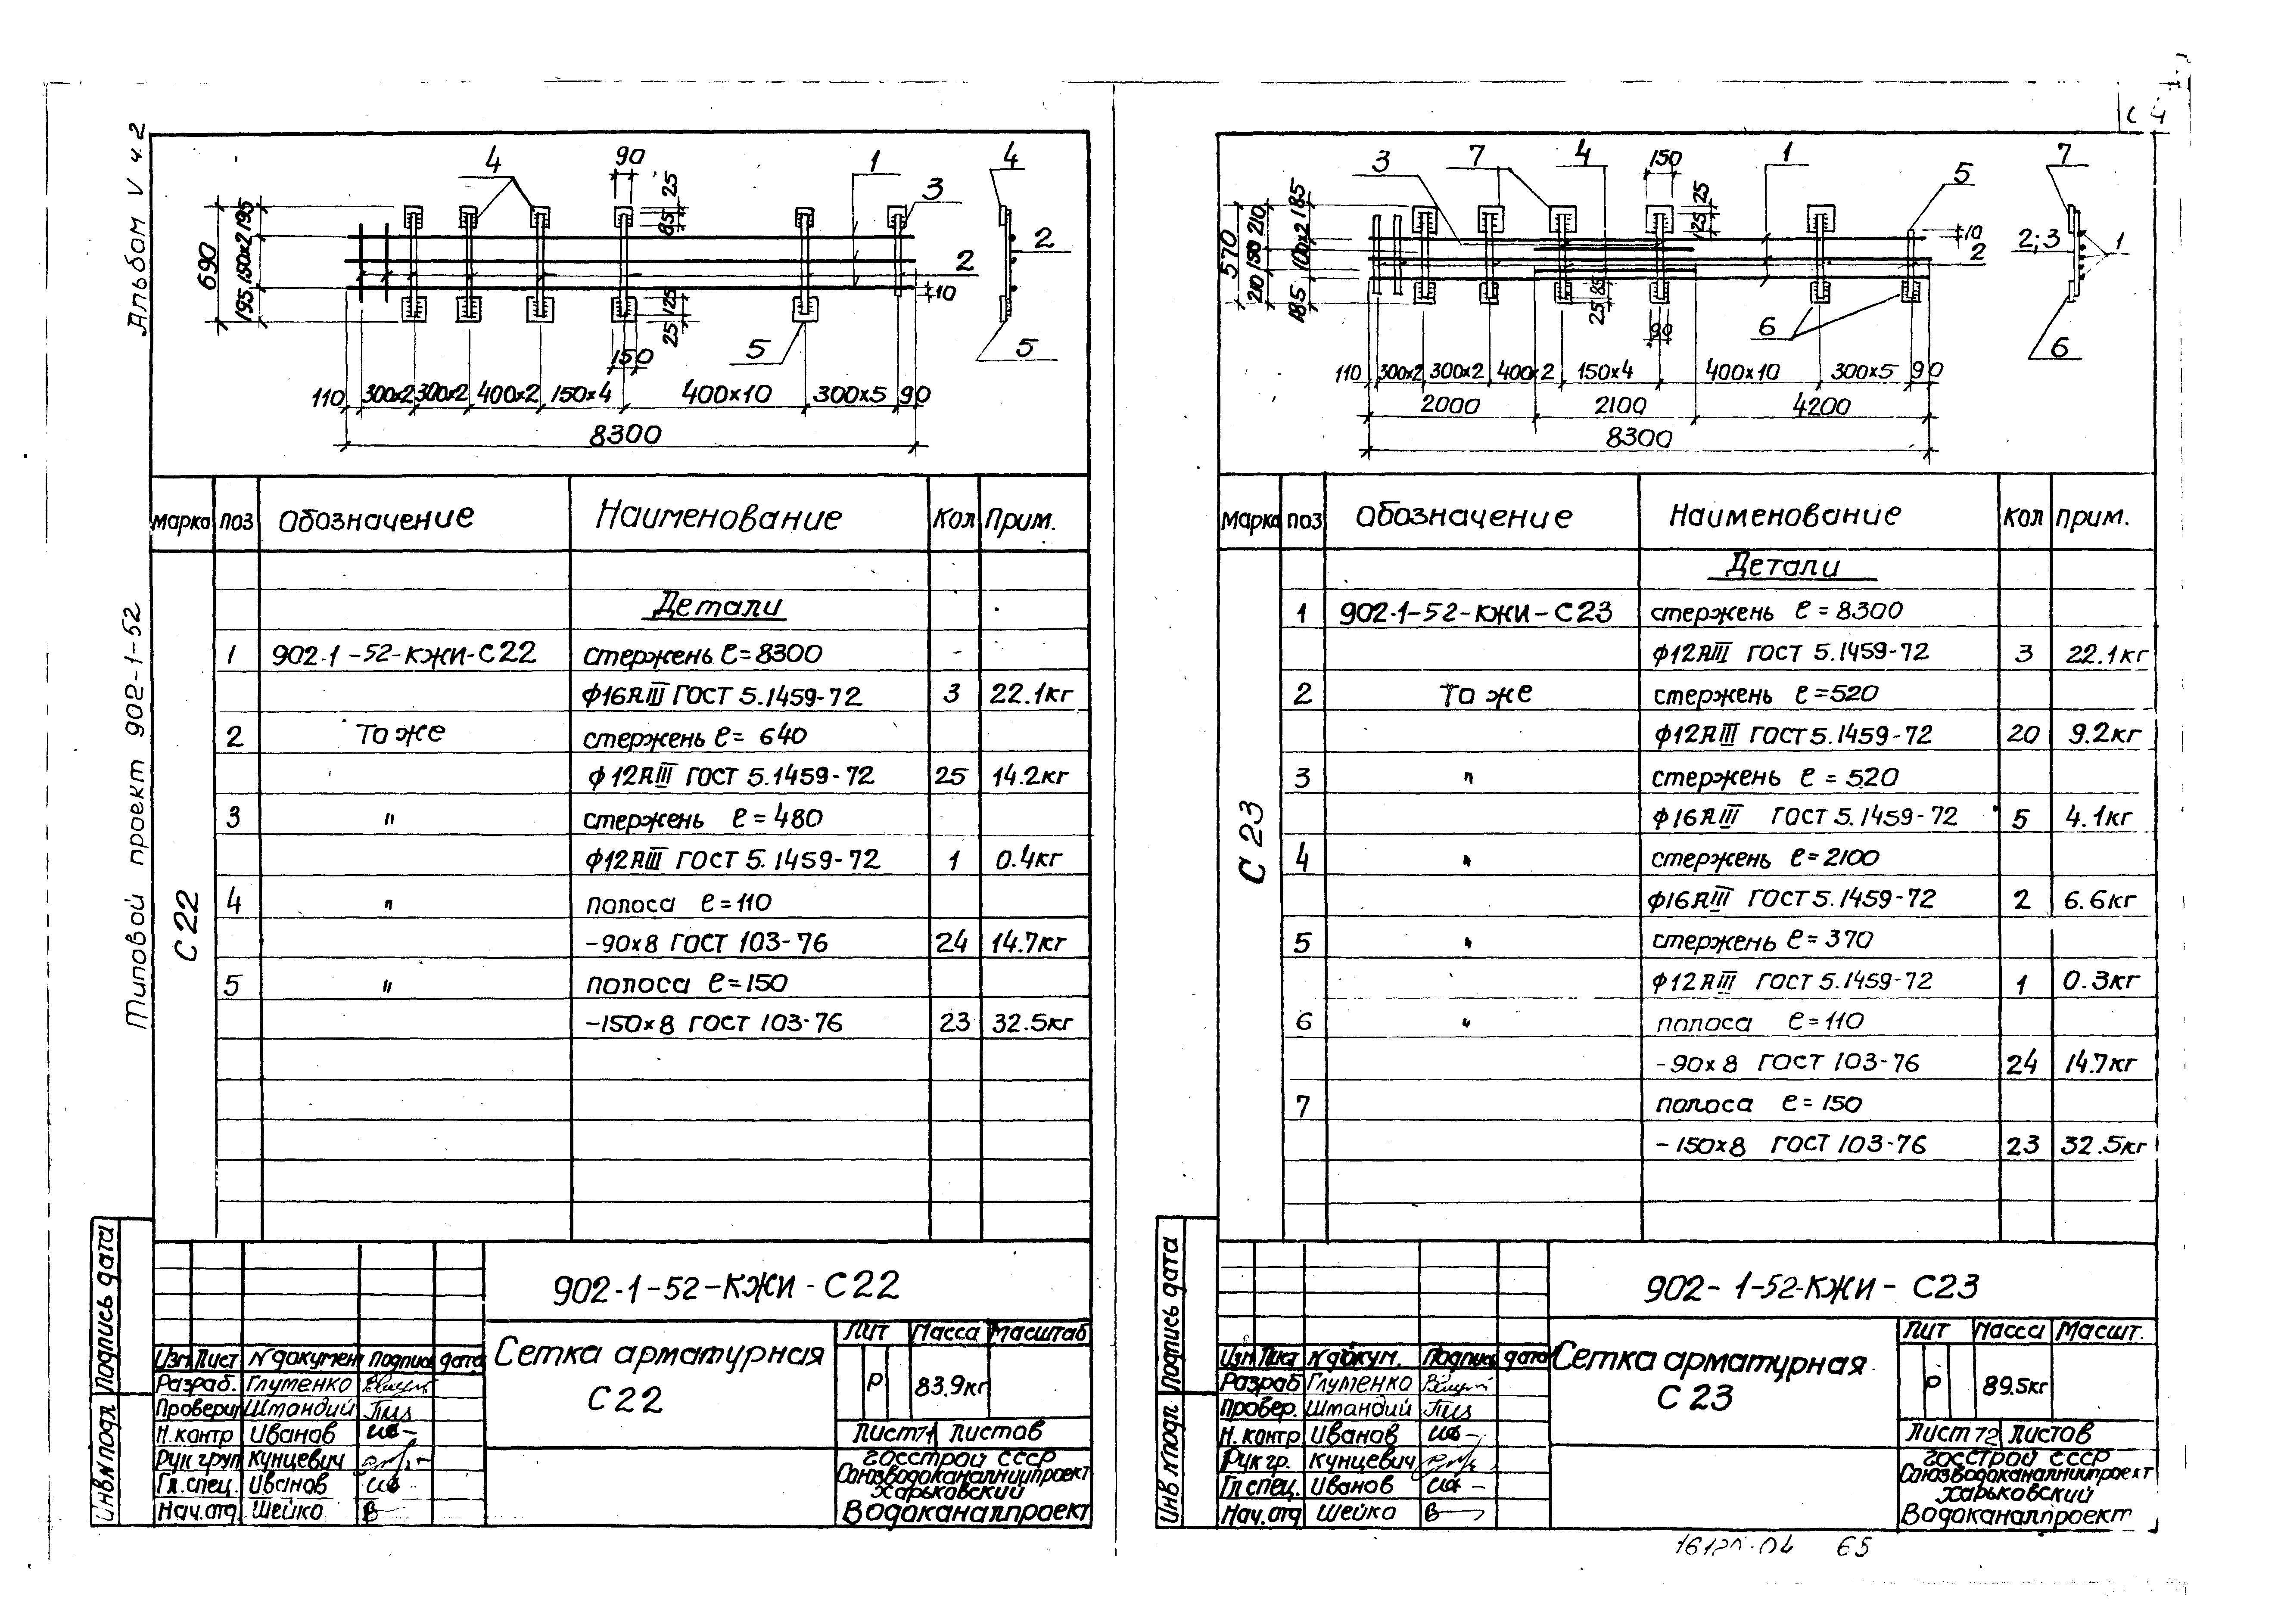 Альбом V ч.2
Типовой проект 902-1-52
4
90
25
85
1
4
3
2
2
10
690
195
150х2
195
125
25
150
5
5
110
300х2
300х2
400х2
150х4
400х10
300х5
90
8300
марка поз обозначение Наименование Кол Прим.
Детали
1 902-1-52-КЖИ-С22 стержень ℓ=8300
ф16АIII ГОСТ 5.1459-72 3 22.1кг
2 То же стержень ℓ= 640
ф12АIII ГОСТ 5.1459-72 25 14.2кг
3 " стержень ℓ=480
ф12АIII ГОСТ 5.1459-72 1 0.4кг
4 " полоса ℓ=110
-90х8 ГОСТ 103-76 24 14.7кг
5 " полоса ℓ=150
-150х8 ГОСТ 103-76 23 32.5кг
С22
902-1-52-КЖИ-С22
Сетка арматурная
С22
Лит Масса Масштаб
Р 83.9кг
Лист 71 Листов
Госстрой СССР
Союзводоканалниипроект
Харьковский
Водоканалпроект
Изм Лист N докумен Подпись дата
Разраб. Глуменко
Проверил Штандий
Н.контр Иванов
Рук груп Кунцевич
Гл.спец. Иванов
Нач.отд. Шейко
Подпись дата
Инв N подл
3
7
4
150
25
125
1
5
7
10
2
2;3
1
570
210
150
210
185
100х2
185
25
85
90
6
6
110
300х2
300х2
400х2
150х4
400х10
300х5
90
2000
2100
4200
8300
Марка поз обозначение Наименование Кол прим.
Детали
1 902-1-52-КЖИ-С23 стержень ℓ=8300
ф12АIII ГОСТ 5.1459-72 3 22.1кг
2 То же стержень ℓ=520
ф12АIII ГОСТ 5.1459-72 20 9.2кг
3 " стержень ℓ=520
ф16АIII ГОСТ 5.1459-72 5 4.1кг
4 " стержень ℓ=2100
ф16АIII ГОСТ 5.1459-72 2 6.6кг
5 " стержень ℓ=370
ф12АIII ГОСТ 5.1459-72 1 0.3кг
6 " полоса ℓ=110
-90х8 ГОСТ 103-76 24 14.7кг
7 полоса ℓ=150
-150х8 ГОСТ 103-76 23 32.5кг
С23
902-1-52-КЖИ-С23
Сетка арматурная
С23
Лит Масса Масшт.
Р 89.5кг
Лист 72 Листов
Госстрой СССР
Союзводоканалниипроект
Харьковский
Водоканалпроект
Изм Лист N докум. Подпись дата
Разраб Глуменко
Провер. Штандий
Н.контр Иванов
Рук гр. Кунцевич
Гл спец. Иванов
Нач.отд Шейко
Подпись дата
Инв N подл
65